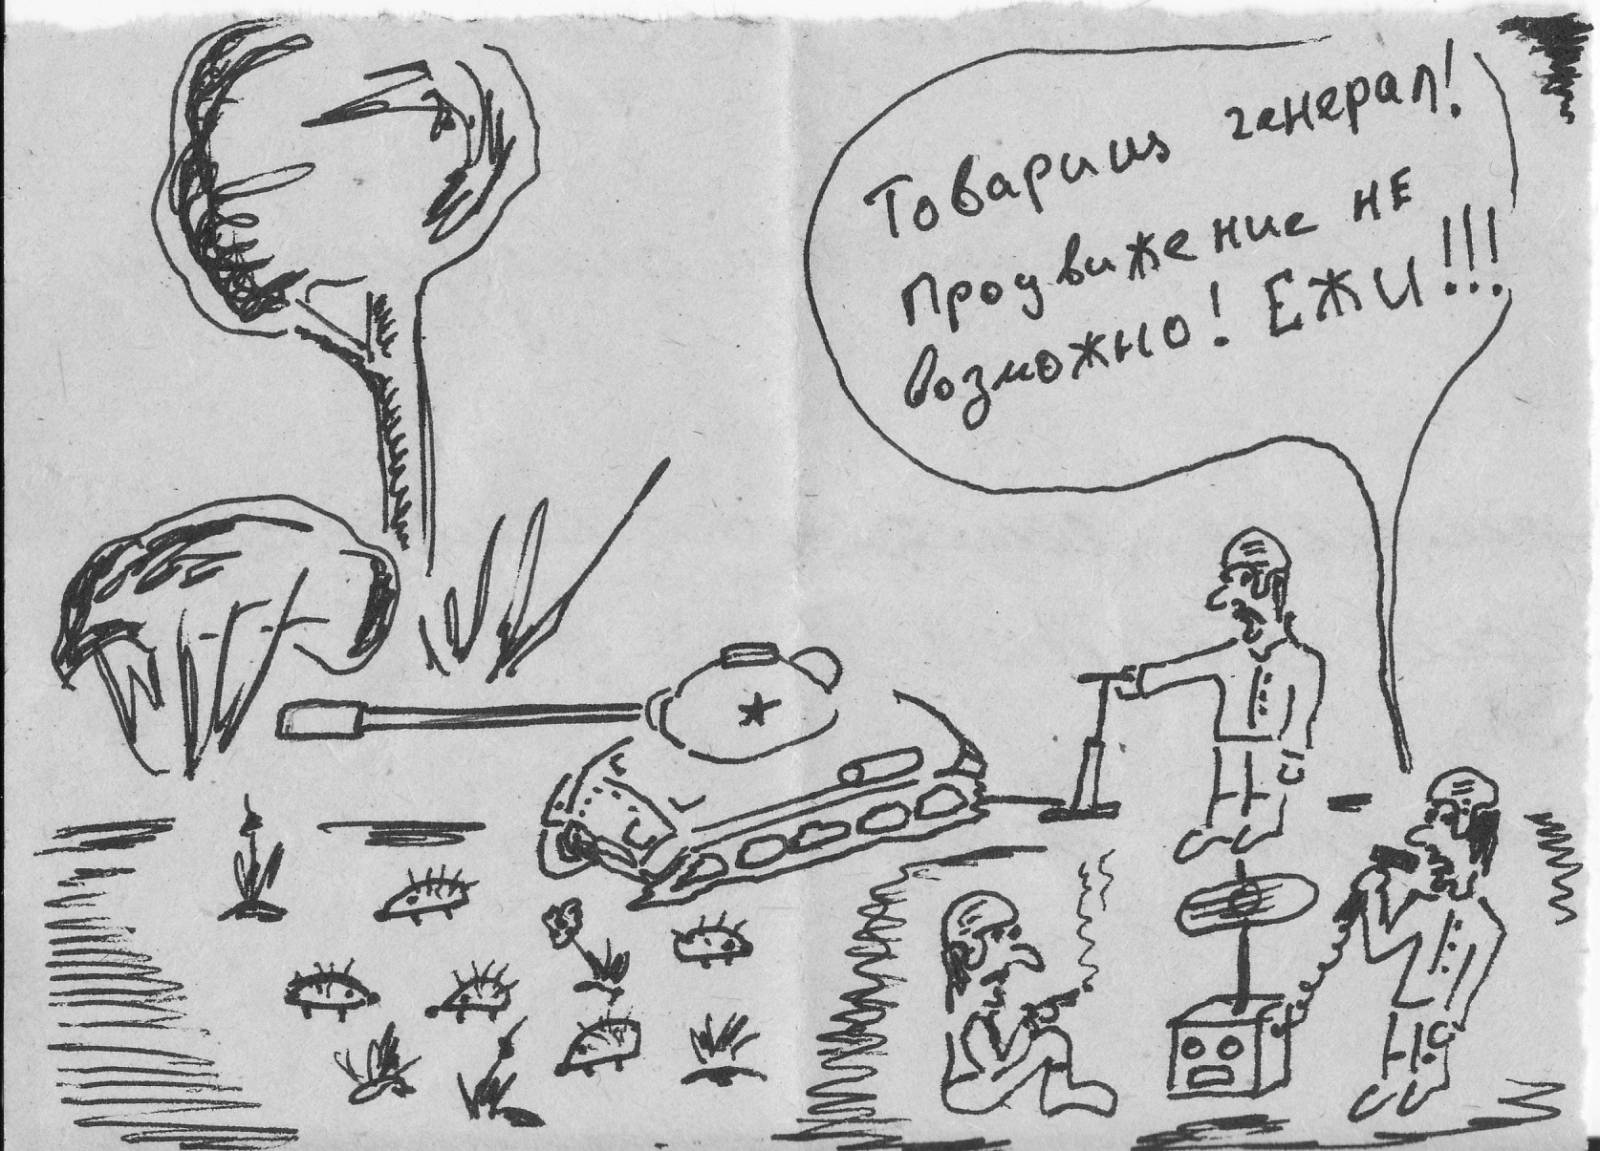 Товарищь генерал!
Продвижение не
возможно! ЕЖИ!!!